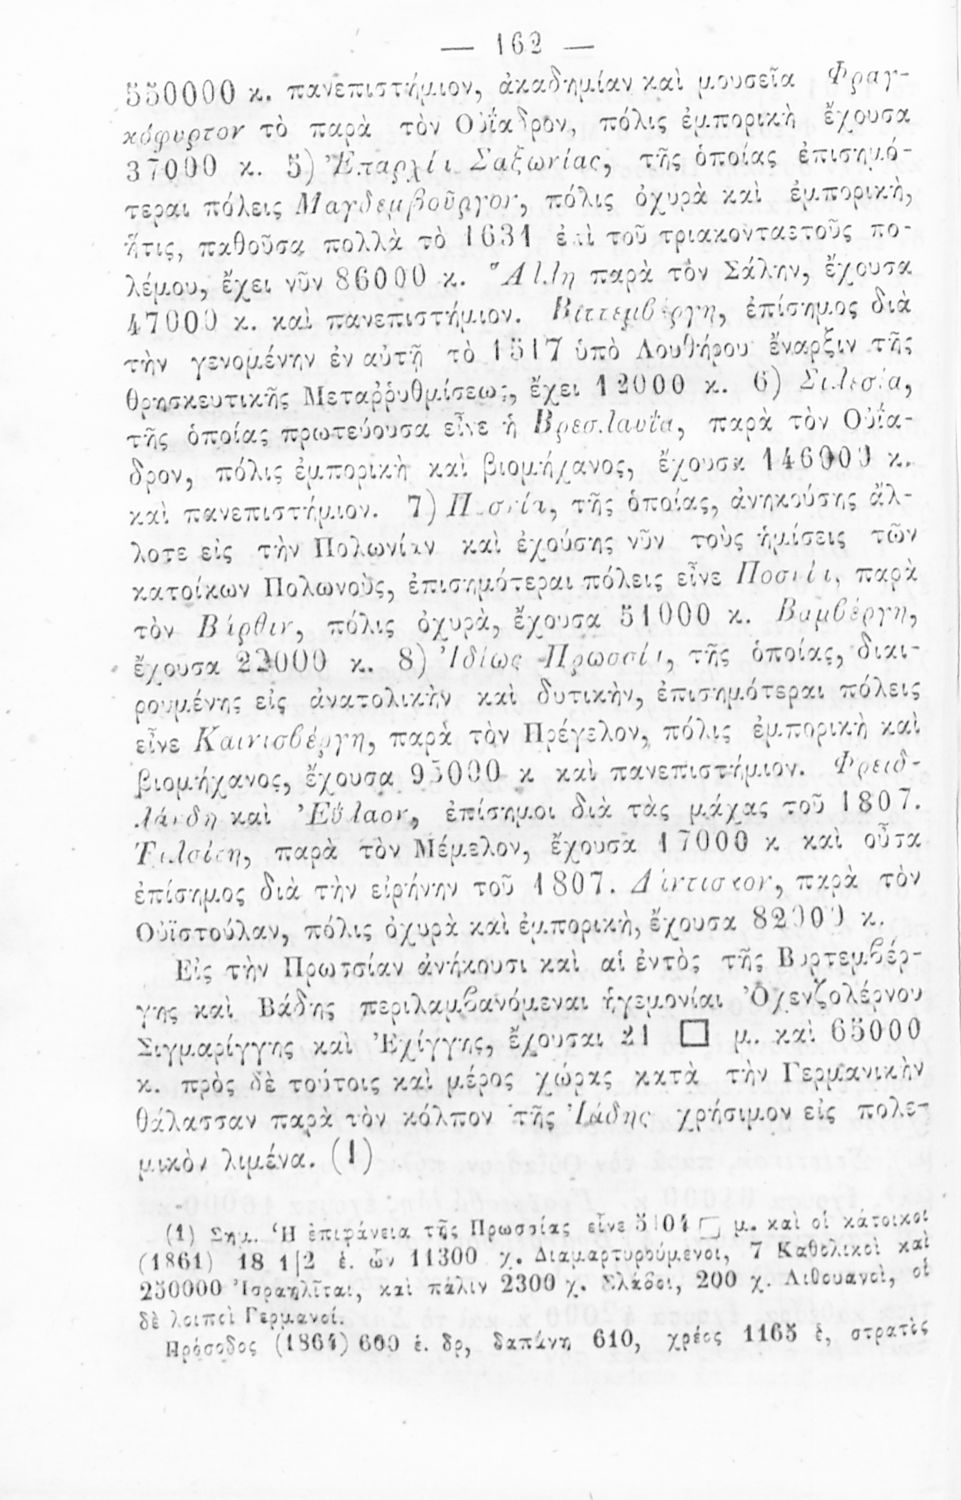 — 162 —
550000 κ. πανεπιστήμιον, ἀκαδημίαν καὶ μουσεῖα Φραγ-
κόφυρτον τὸ παρὰ τὸν Οὐΐαδρον, πόλις ἐμπορικὴ ἔχουσα
37000 κ. 5) Ἐπαρχία Σαξωνίας, τῆς ὁποίας ἐπισημό-
τεραι πόλεις Μαγδεμβοῦργον, πόλις ὀχυρὰ καὶ ἐμπορικὴ,
ἥτις, παθοῦσα πολλὰ τὸ 1631 ἐπὶ τοῦ τριακονταετοῦς πο-
λέμου, ἔχει νῦν 86000 κ. Ἅλλη παρὰ τὸν Σάλην, ἔχουσα
47000 κ. καὶ πανεπιστήμιον. Βιττεμβέργη, ἐπίσημος διὰ
τὴν γενομένην ἐν αὐτῇ τὸ 1517 ὑπὸ Λουθήρου ἔναρξιν τῆς
θρησκευτικῆς Μεταῤῥυθμίσεως, ἔχει 12000 κ. 6) Σιλεσία,
τῆς ὁποίας πρωτεύουσα εἶνε ἡ Βρεσλαυΐα, παρὰ τὸν Οὐΐα-
δρον, πόλις ἐμπορικὴ καὶ βιομήχανος, ἔχουσα 146000 κ.
καὶ πανεπιστήμιον. 7) Ποσνία, τῆς ὁποίας, ἀνηκούσης ἄλ-
λοτε εἰς τὴν Πολωνίαν καὶ ἐχούσης νῦν τοὺς ἡμίσεις τῶν
κατοίκων Πολωνοὺς, ἐπισημότεραι πόλεις εἶνε Ποσνία, παρὰ
τὸν Βάρθιν, πόλις ὀχυρὰ, ἔχουσα 51000 κ. Βαμβέργη,
ἔχουσα 22000 κ. 8) Ἰδίως Πρωσσία, τῆς ὁποίας, διαι-
ρουμένης εἰς ἀνατολικὴν καὶ δυτικὴν, ἐπισημότεραι πόλεις
εἶνε Καινισβέργη, παρὰ τὸν Πρέγελον, πόλις ἐμπορικὴ καὶ
βιομήχανος, ἔχουσα 95000 κ καὶ πανεπιστήμιον. Φρειδ-
λάνδη καὶ Ἐΰλαον, ἐπίσημοι διὰ τὰς μάχας τοῦ 1807.
Τιλσίτη, παρὰ τὸν Μέμελον, ἔχουσα 17000 κ καὶ οὖσα
ἐπίσημος διὰ τὴν εἰρήνην τοῦ 1807. Δάντισκον, παρὰ τὸν
Οὐϊστούλαν, πόλις ὀχυρὰ καὶ ἐμπορικὴ, ἔχουσα 82000 κ.
Εἰς τὴν Πρωσσίαν ἀνήκουσι καὶ αἱ ἐντὸς τῆς Βυρτεμβέρ-
γης καὶ Βάδης περιλαμβανόμεναι ἡγεμονίαι Ὀχενζολέρνου
Σιγμαρίγγης καὶ Ἐχίγγης, ἔχουσαι 21 □ μ. καὶ 65000
κ. πρὸς δὲ τούτοις καὶ μέρος χώρας κατὰ τὴν Γερμανικὴν
θάλασσαν παρὰ τὸν κόλπον τῆς Ἰάδης χρήσιμον εἰς πολε-
μικὸν λιμένα. (1)
(1) Σημ. Ἡ ἐπιφάνεια τῆς Πρωσσίας εἶνε 5104 □ μ. καὶ οἱ κάτοικοι
(1861) 18 1|2 ἑ. ὧν 11300 χ. Διαμαρτυρούμενοι, 7 Καθολικοὶ καὶ
250000 Ἰσραηλῖται, καὶ πάλιν 2300 χ. Σλάβοι, 200 χ. Λιθουανοὶ, οἱ
δὲ λοιποὶ Γερμανοί.
Πρόσοδος (1864) 600 ἑ. δρ, δαπάνη 610, χρέος 1165 ἑ, στρατὸς